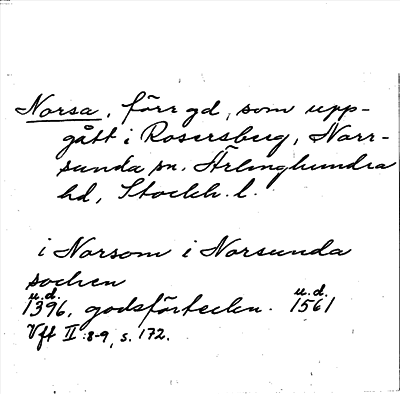 Norsa, förr gd, som upp-
gått i Rosersberg, Norr-
sunda sn. Ärlinghundra
hd, Stockh. l.
i Norsom i Norsunda
sochen
u.d. u.d.
1396, godsförteckn. 1561
Vft II :8-9, s. 172.